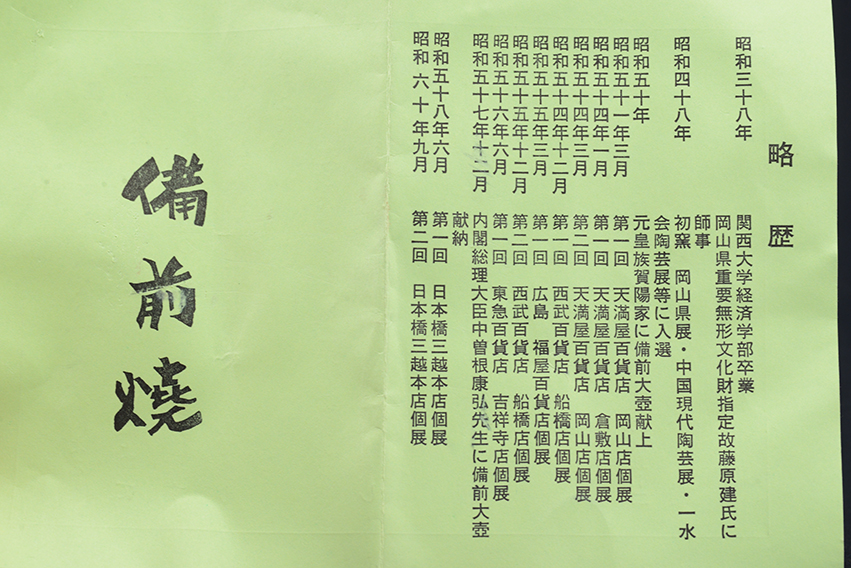 略歴
昭和三十八年 関西大学経済学部卒業
岡山県重要無形文化財指定故藤原建氏に
師事
昭和四十八年 初窯 岡山県展・中国現代陶芸展・一水
会陶芸展等に入選
昭和五十年 元皇族賀陽家に備前大壺献上
昭和五十一年三月 第一回 天満屋百貨店 岡山店個展
昭和五十四年一月 第一回 天満屋百貨店 倉敷店個展
昭和五十四年三月 第二回 天満屋百貨店 岡山店個展
昭和五十四年十二月 第一回 西武百貨店 船橋店個展
昭和五十五年三月 第一回 広島 福屋百貨店個展
昭和五十五年十二月 第二回 西武百貨店 船橋店個展
昭和五十六年六月 第一回 東急百貨店 吉祥寺店個展
昭和五十七年十二月 内閣総理大臣中曽根康弘先生に備前大壺
献納
昭和五十八年六月 第一回 日本橋三越本店個展
昭和六十年九月 第二回 日本橋三越本店個展
備前燒